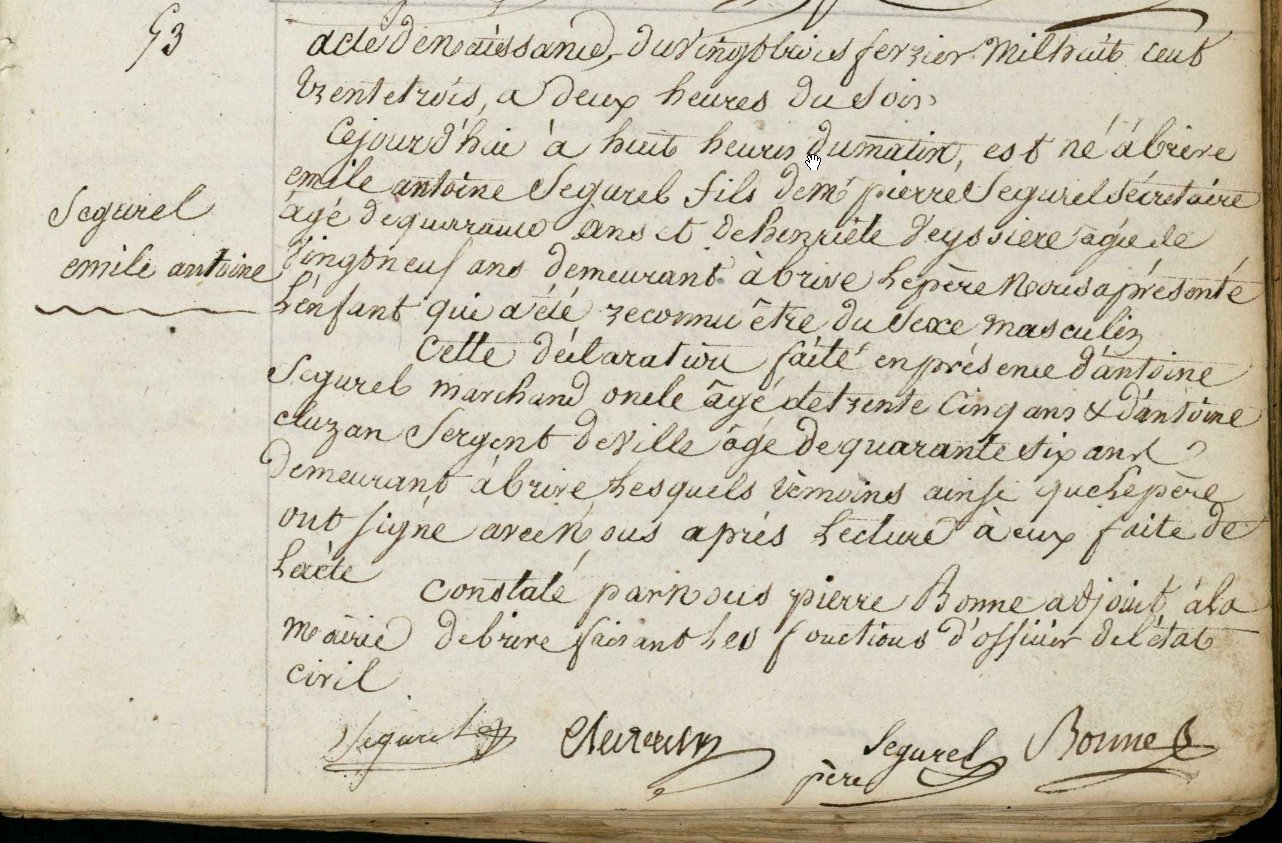 53
acte de naissance, du vingt trois fevrier mil huit cent
trente trois, a deux heures du soir
Cejourd'hui à huit heures du matin, est né à brive
Segurel
emile antoine
emile antoine Segurel fils de mr pierre Segurel sécretaire
âgé de quarante ans et de henriete deyssiere âgée de
vingt neuf ans demeurant à brive Le père Nous a présenté
L'enfant qui a été reconnu être du Sexe masculin
Cette déclaration faite en présence d'antoine
Segurel marchand oncle âgé de trente Cinq ans & d'antoine
cluzan Sergent de Ville âgé de quarante six ans
demeurant à brive Lesquels témoins ainsi que Le père
ont signé avec Nous après Lecture à eux faite de
L'acte
Constaté par Nous pierre Bonne adjoint à la
Mairie de brive faisant Les fonctions d'officier de l'état
civil
Segurel
Segurel
père
Bonne